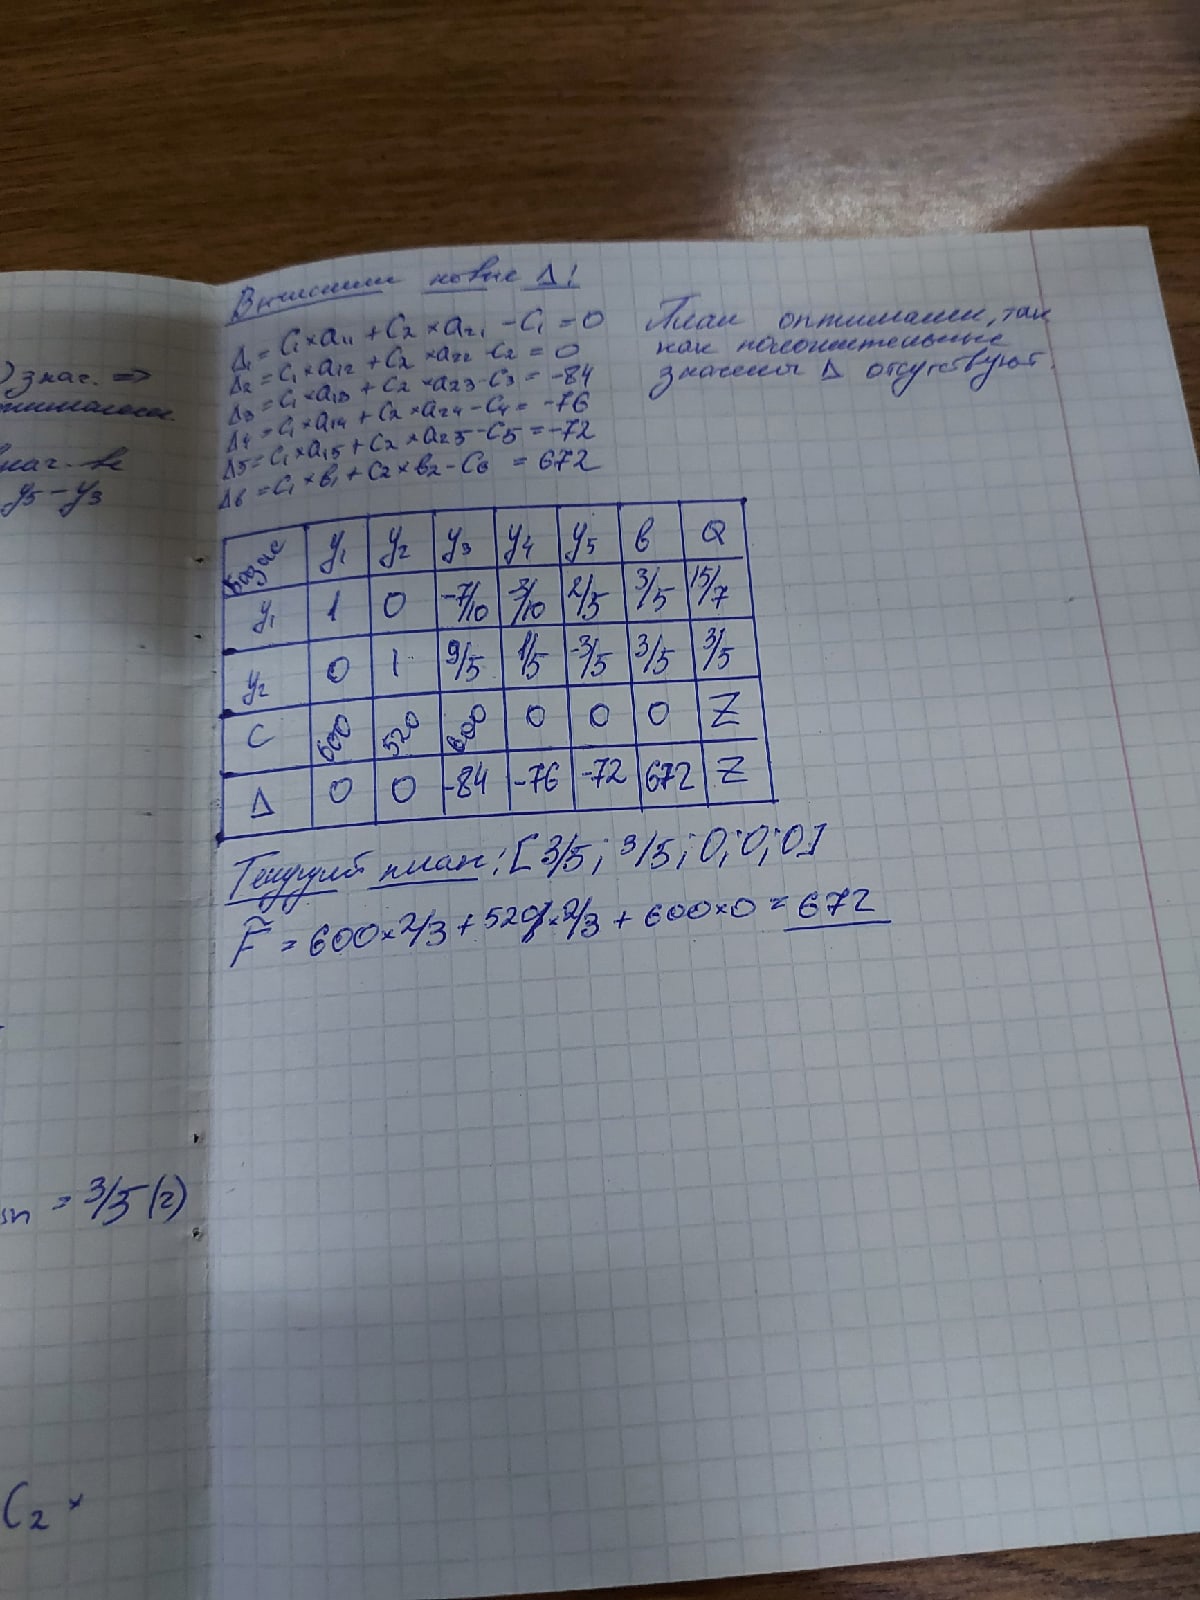 ) знач. =>
нач.
y5 - y3
= 3/5 (2)
C2 ×
Вычислим новые Δ!
Δ1 = C1×a11 + C2×a21 - C1 = 0
Δ2 = C1×a12 + C2×a22 - C2 = 0
Δ3 = C1×a13 + C2×a23 - C3 = -84
Δ4 = C1×a14 + C2×a24 - C4 = -76
Δ5 = C1×a15 + C2×a25 - C5 = -72
Δ6 = C1×b1 + C2×b2 - C6 = 672
План оптимален, так
как положительные
значения Δ отсутствуют.
базис y1 y2 y3 y4 y5 b Q
y1 1 0 -7/10 -3/10 2/5 3/5 15/7
y2 0 1 9/5 1/5 -3/5 3/5 3/5
C 600 520 600 0 0 0 Z
Δ 0 0 -84 -76 -72 672 Z
Текущий план: [3/5; 3/5; 0; 0; 0]
F̃ = 600×2/3 + 520×2/3 + 600×0 = 672